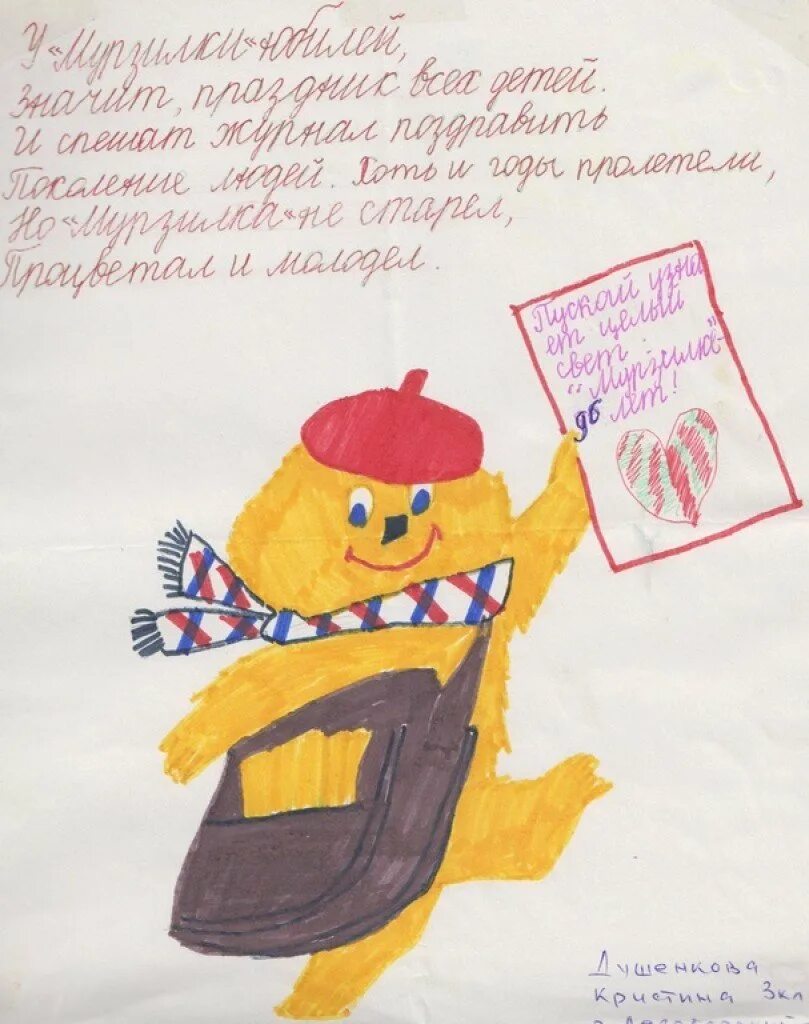 У «Мурзилки» юбилей,
Значит, праздник всех детей.
И спешат журнал поздравить
Поколение людей. Хоть и годы пролетели,
Но «Мурзилка» не старел,
Процветал и молодел.
Пускай узна
ет целый
свет.
"Мурзилке"-
96 лет!
Душенкова
Кристина 3кл